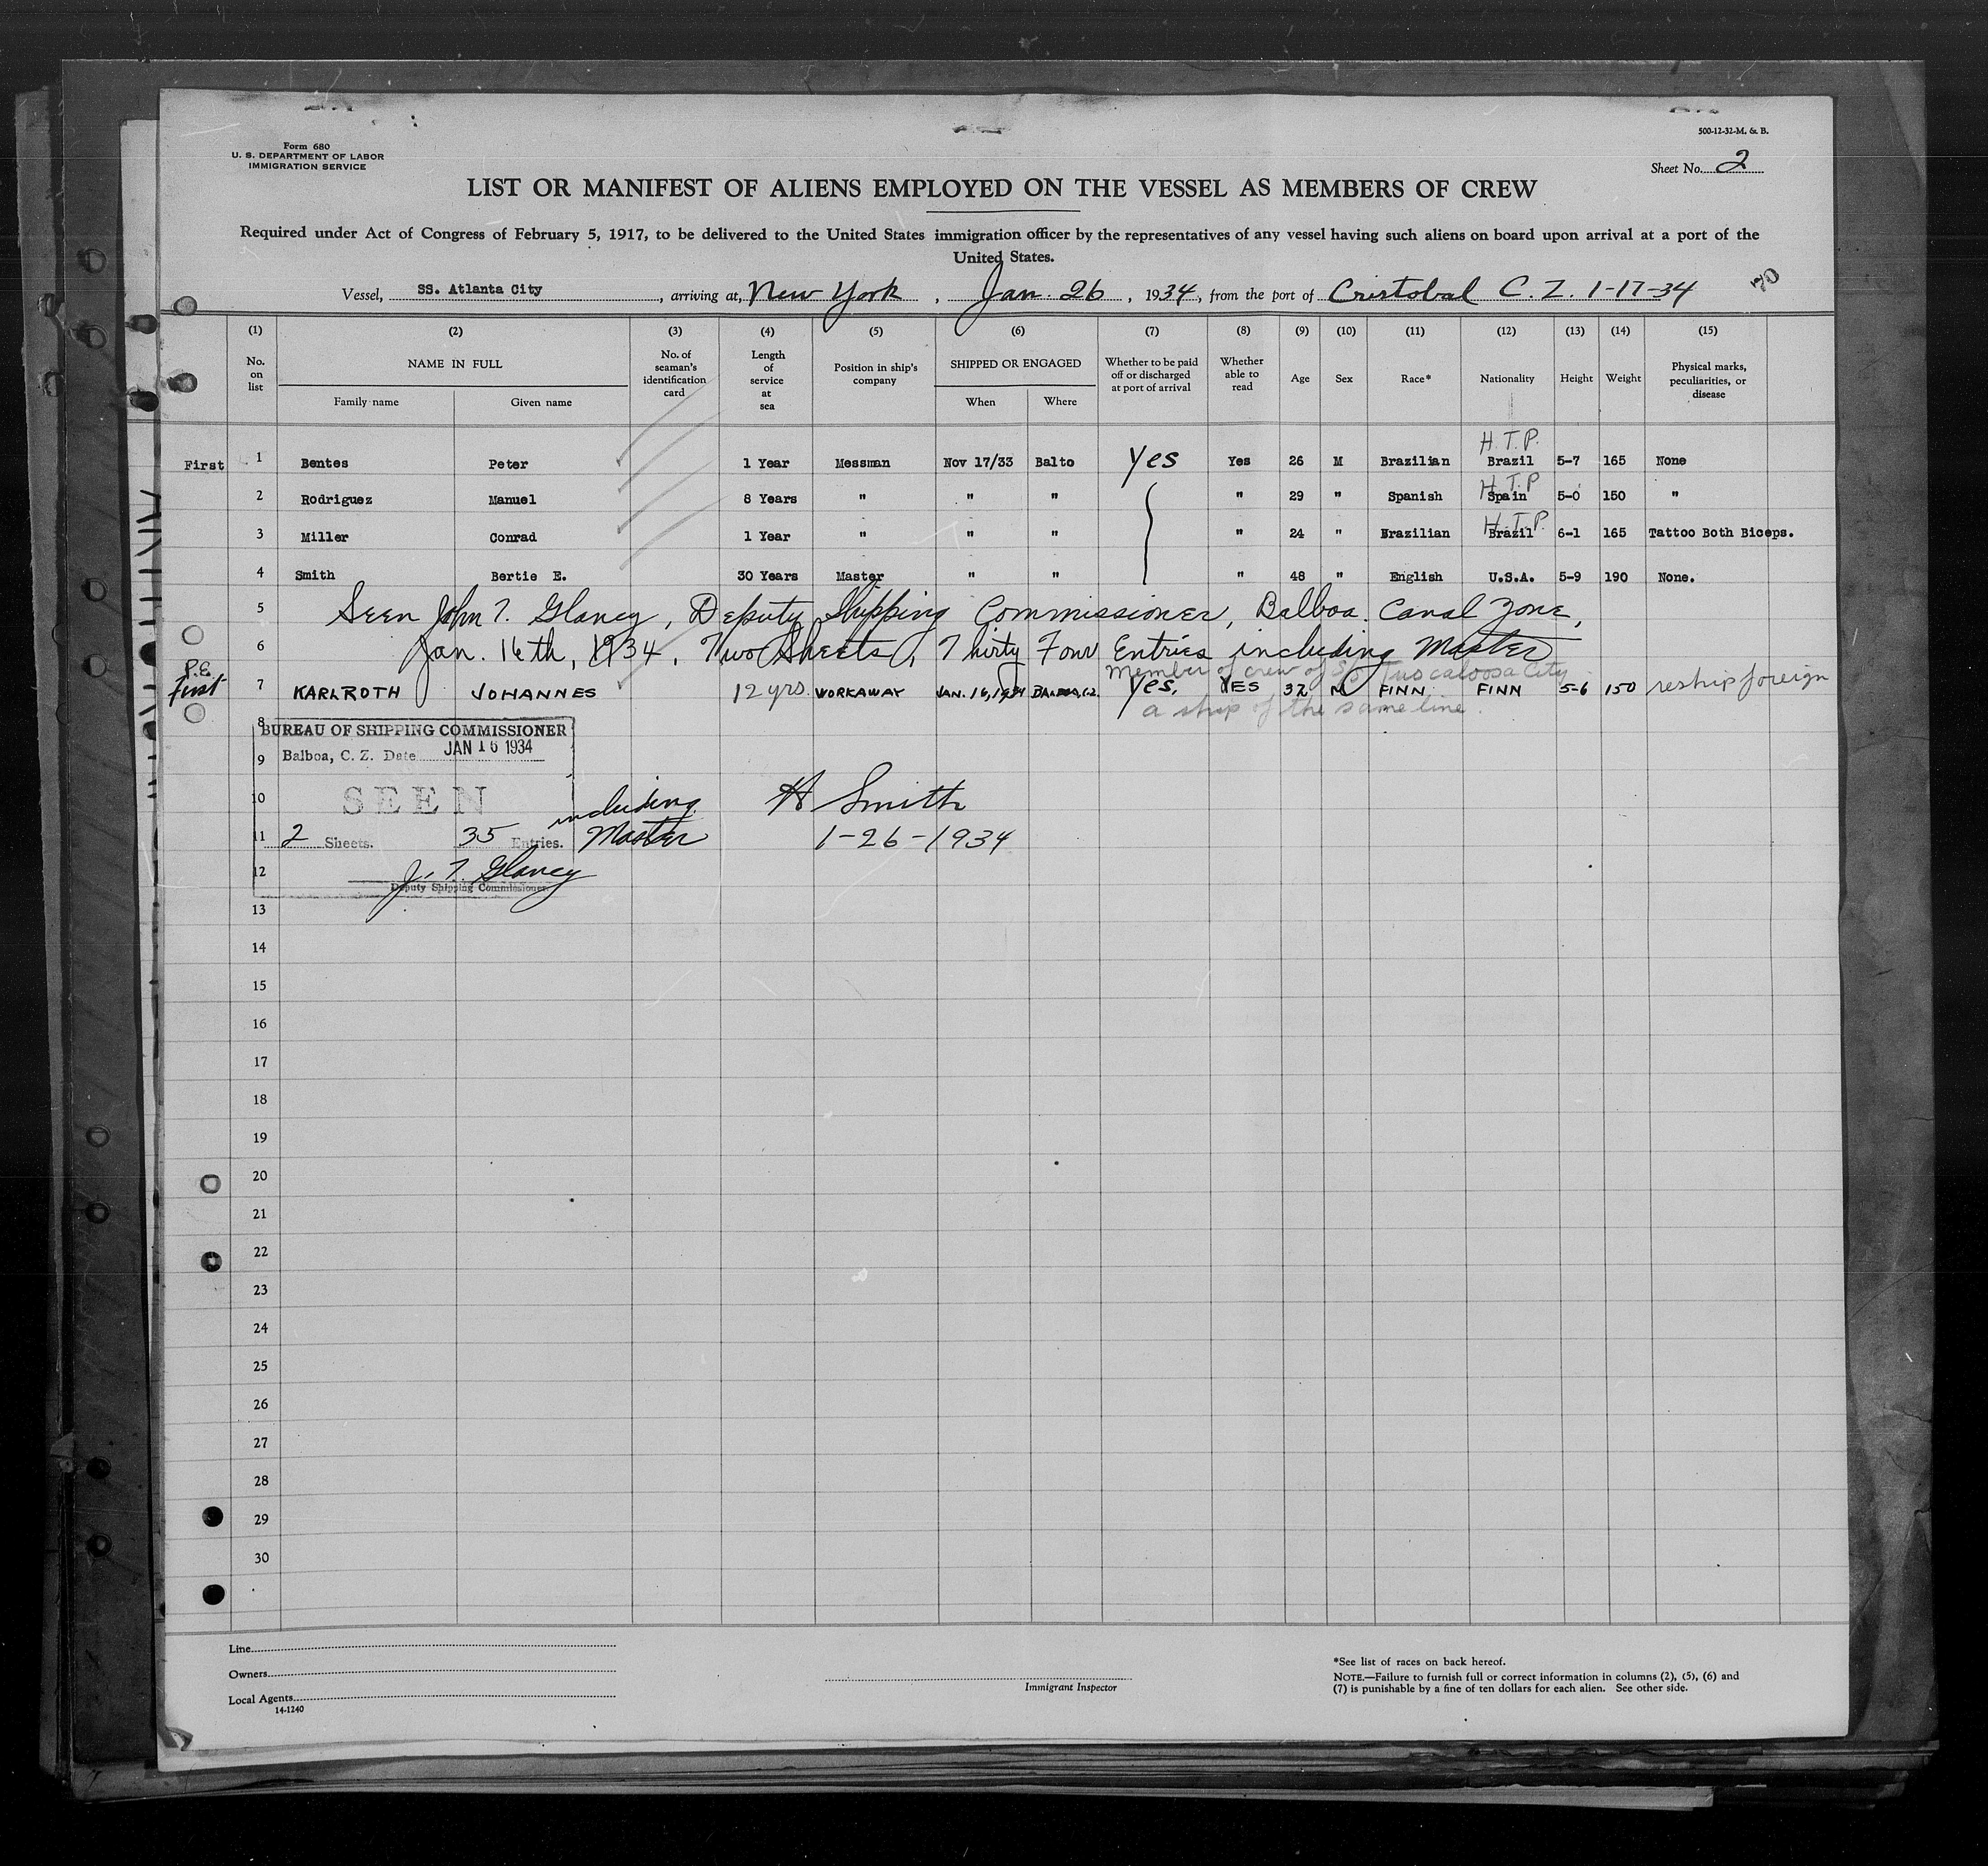 Form 680
U. S. DEPARTMENT OF LABOR
IMMIGRATION SERVICE
500-12-32-M. & B.
Sheet No. 2
LIST OR MANIFEST OF ALIENS EMPLOYED ON THE VESSEL AS MEMBERS OF CREW
Required under Act of Congress of February 5, 1917, to be delivered to the United States immigration officer by the representatives of any vessel having such aliens on board upon arrival at a port of the
United States.
Vessel, SS. Atlanta City, arriving at, New York, Jan. 26, 1934, from the port of Cristobal C. Z. 1-17-34
70
(1) (2) (3) (4) (5) (6) (7) (8) (9) (10) (11) (12) (13) (14) (15)
No. on list
NAME IN FULL
Family name Given name
No. of seaman's identification card
Length of service at sea
Position in ship's company
SHIPPED OR ENGAGED
When Where
Whether to be paid off or discharged at port of arrival
Whether able to read
Age
Sex
Race*
Nationality
Height
Weight
Physical marks, peculiarities, or disease
H.T.P.
First 1 Bentes Peter 1 Year Messman Nov 17/33 Balto Yes Yes 26 M Brazilian Brazil 5-7 165 None
H.T.P
2 Rodriguez Manuel 8 Years " " " " 29 " Spanish Spain 5-0 150 "
H.T.P.
3 Miller Conrad 1 Year " " " " 24 " Brazilian Brazil 6-1 165 Tattoo Both Biceps.
4 Smith Bertie E. 30 Years Master " " " 48 " English U.S.A. 5-9 190 None.
5 Seen John T. Glancy, Deputy Shipping Commissioner, Balboa. Canal Zone,
6 Jan. 16th, 1934, Two Sheets, Thirty Four Entries including Master
Member of crew of SS Tuscaloosa City
P.E.
First 7 KARLROTH JOHANNES 12 yrs. WORKAWAY JAN. 16, 1934 BALBOA, C.Z. Yes, YES 32 M FINN FINN 5-6 150 reship foreign
a ship of the same line.
8 BUREAU OF SHIPPING COMMISSIONER
9 Balboa, C. Z. Date JAN 16 1934
10 SEEN including H Smith
11 2 Sheets. 35 Entries. Master 1-26-1934
12 J. T. Glancy
Deputy Shipping Commissioner
13
14
15
16
17
18
19
20
21
22
23
24
25
26
27
28
29
30
Line
Owners
Local Agents
14-1240
Immigrant Inspector
*See list of races on back hereof.
NOTE.—Failure to furnish full or correct information in columns (2), (5), (6) and
(7) is punishable by a fine of ten dollars for each alien. See other side.